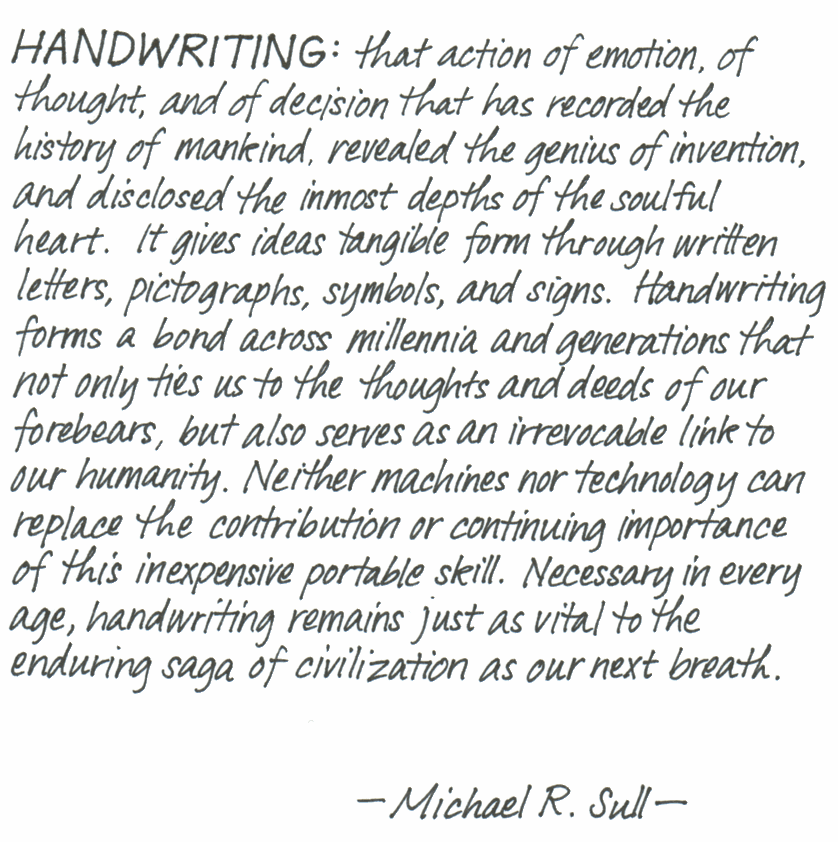 HANDWRITING: that action of emotion, of
thought, and of decision that has recorded the
history of mankind, revealed the genius of invention,
and disclosed the inmost depths of the soulful
heart. It gives ideas tangible form through written
letters, pictographs, symbols, and signs. Handwriting
forms a bond across millennia and generations that
not only ties us to the thoughts and deeds of our
forebears, but also serves as an irrevocable link to
our humanity. Neither machines nor technology can
replace the contribution or continuing importance
of this inexpensive portable skill. Necessary in every
age, handwriting remains just as vital to the
enduring saga of civilization as our next breath.
—Michael R. Sull—